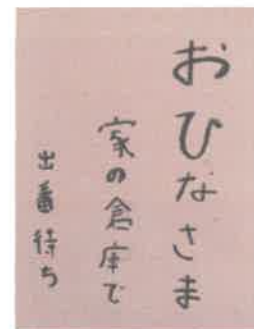 おひなさま
家の倉庫で
出番待ち